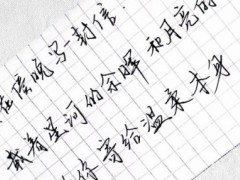 在傍晚写一封信
载着星河的余晖 和月亮的
你 寄给温柔本身